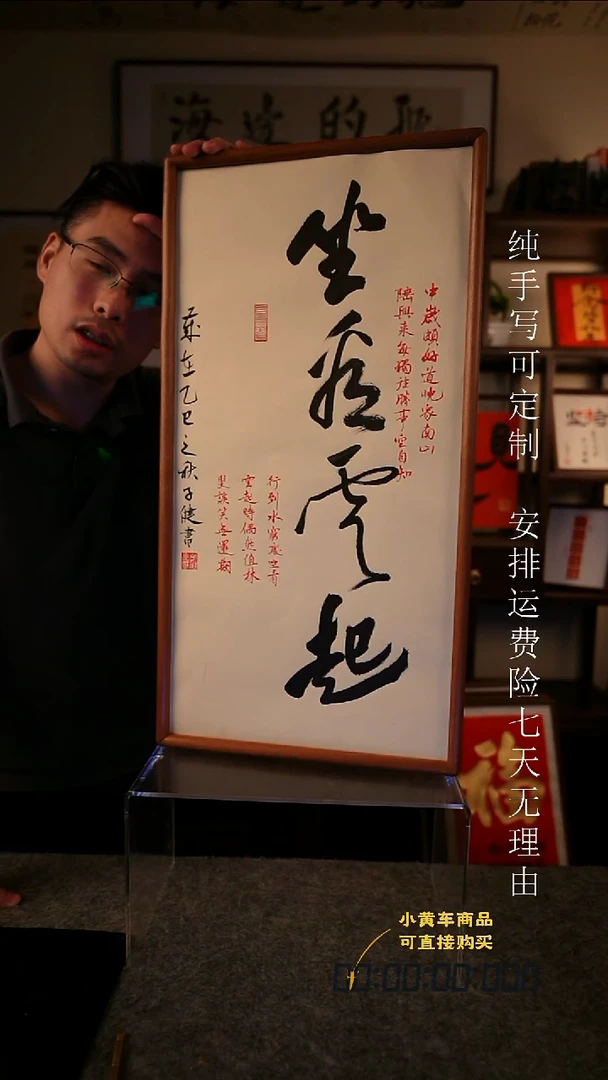 坐看雲起
中歲頗好道晚家南山
陲興來每獨往勝事空自知
行到水窮處坐看
雲起時偶然值林
叟談笑無還期
歲在乙巳之秋子健書
纯手写可定制 安排运费险七天无理由
福
小黄车商品
可直接购买